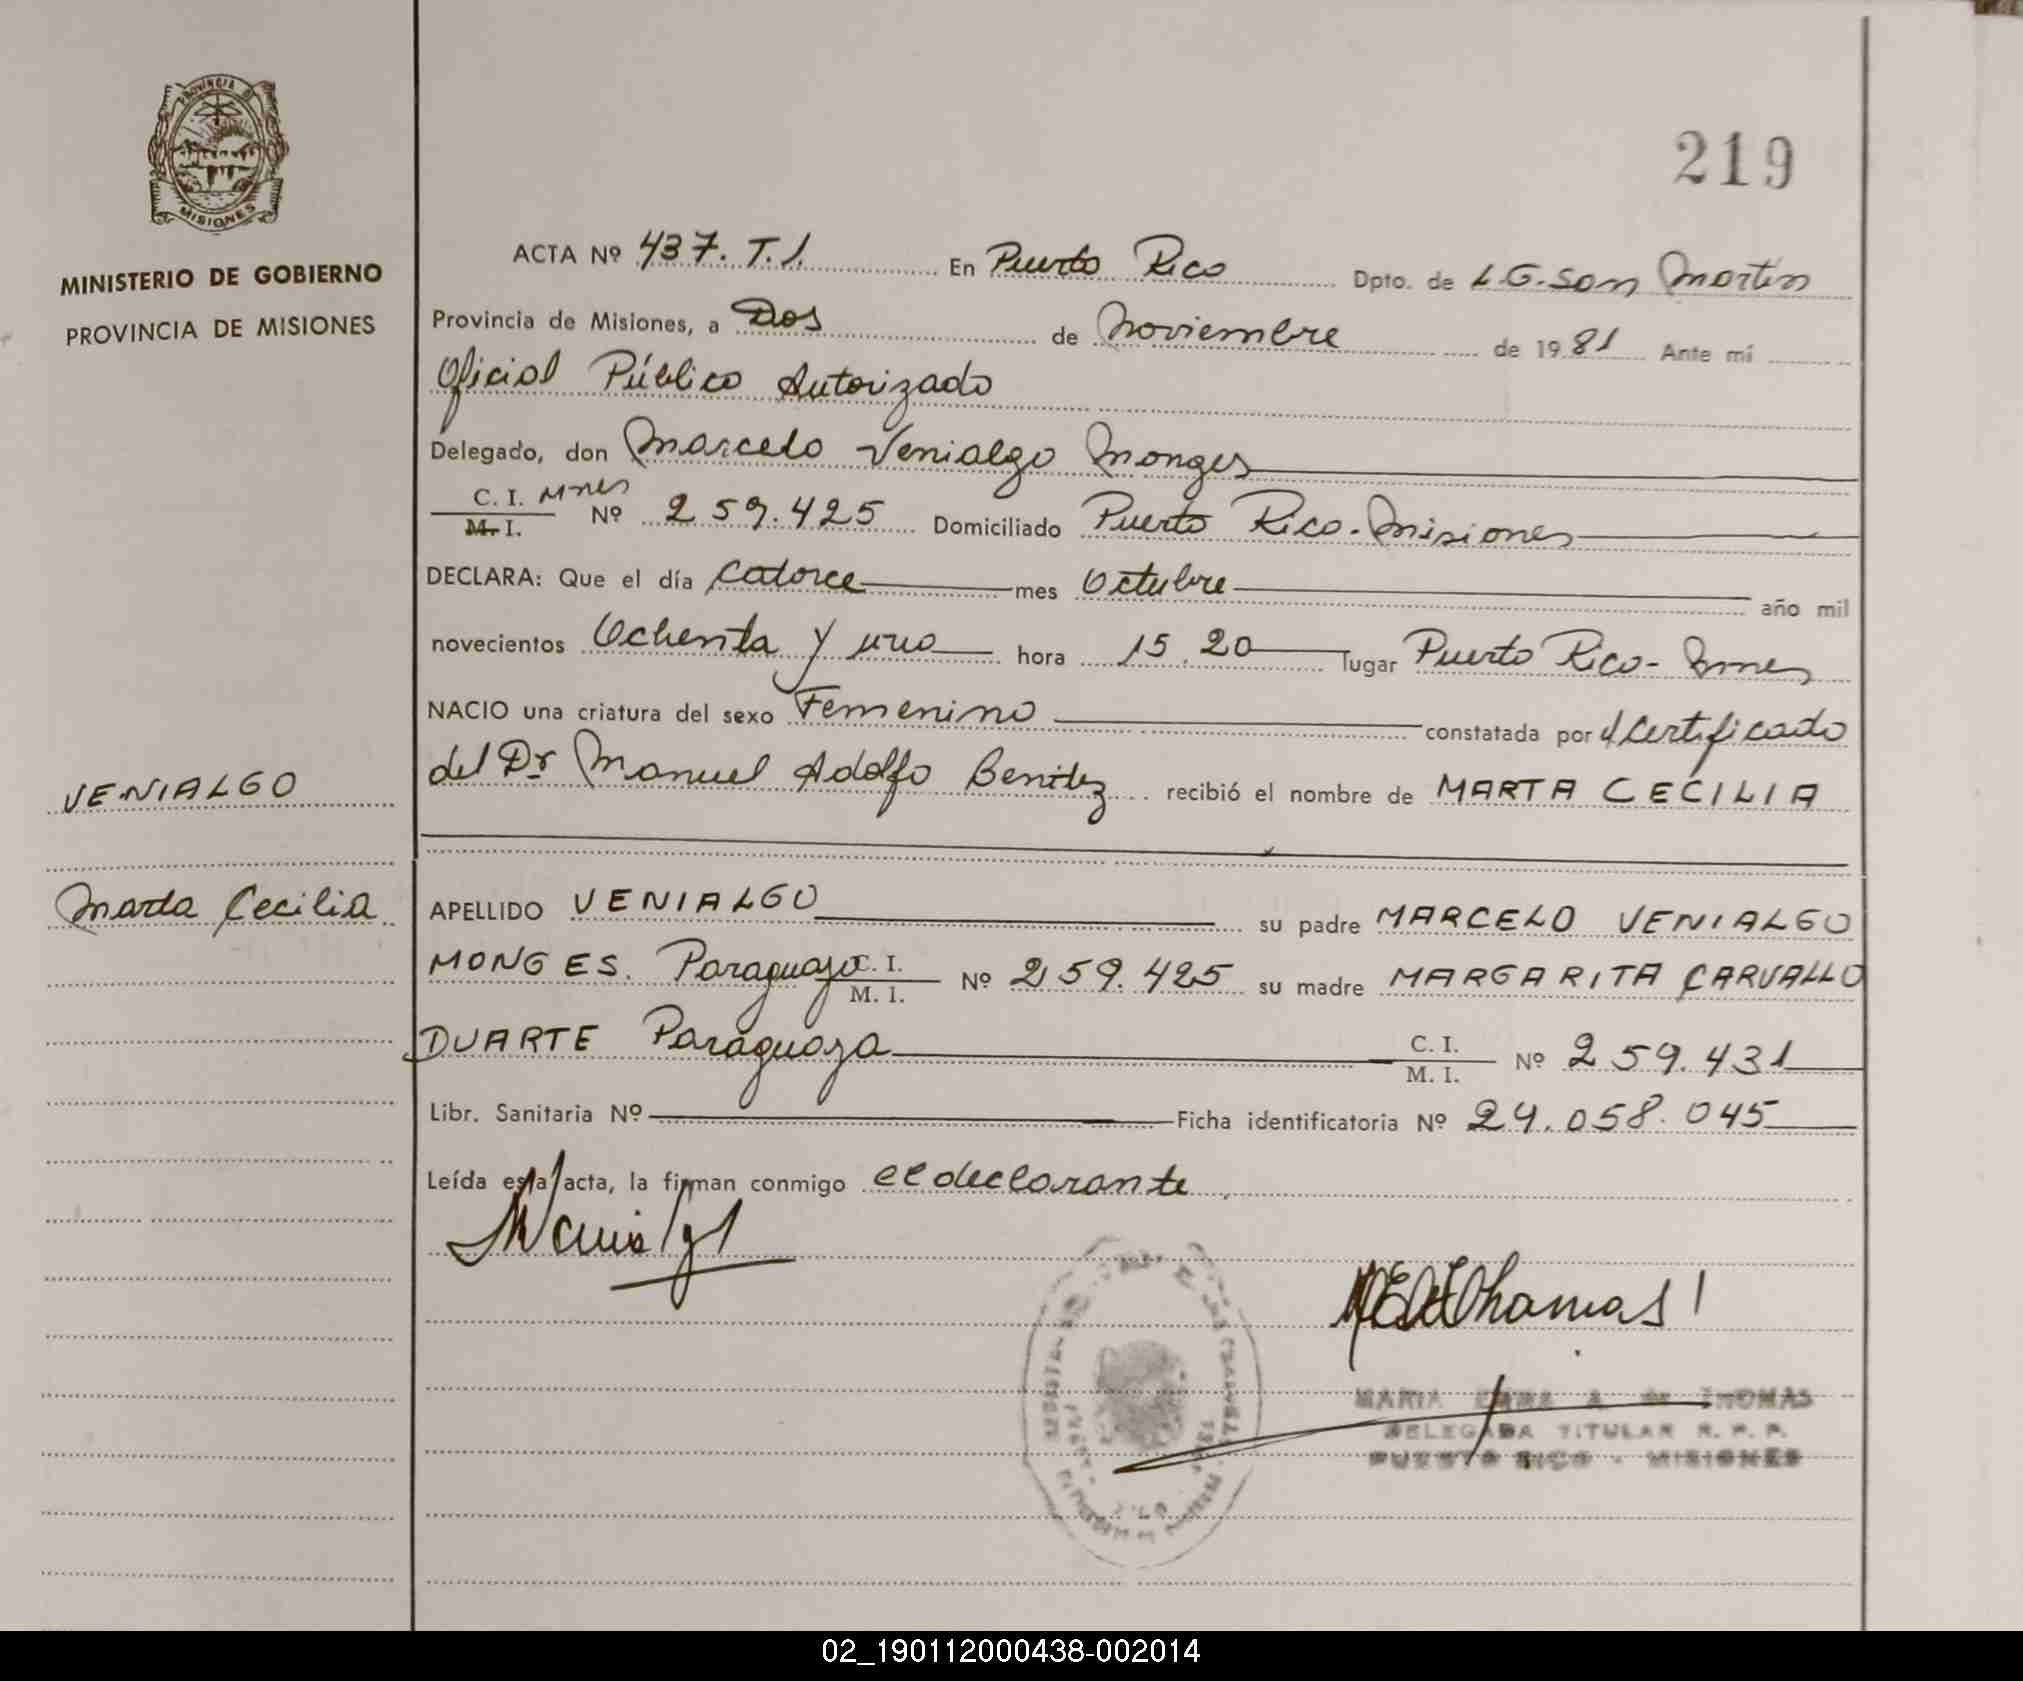 PROVINCIA DE
MISIONES
MINISTERIO DE GOBIERNO
PROVINCIA DE MISIONES
VENIALGO
Marta Cecilia
219
ACTA Nº 437. T.I. En Puerto Rico Dpto. de L.G. San Martín
Provincia de Misiones, a Dos de Noviembre de 1981 Ante mí
Oficial Público Autorizado
Delegado, don Marcelo Venialgo Monges
C. I. Mnes
M. I. Nº 259.425 Domiciliado Puerto Rico - Misiones
DECLARA: Que el día catorce mes Octubre año mil
novecientos Ochenta y uno hora 15.20 lugar Puerto Rico - Mnes
NACIO una criatura del sexo Femenino constatada por Certificado
del Dr Manuel Adolfo Benitez recibió el nombre de MARTA CECILIA
APELLIDO VENIALGO su padre MARCELO VENIALGO
MONGES. Paraguayo C. I. M. I. Nº 259.425 su madre MARGARITA CARVALLO
DUARTE Paraguaya C. I. M. I. Nº 259.431
Libr. Sanitaria Nº Ficha identificatoria Nº 29.058.045
Leída esta acta, la firman conmigo el declarante
MARIA A. de THOMAS
DELEGADA TITULAR R. P. P.
PUERTO RICO - MISIONES
02_190112000438-002014